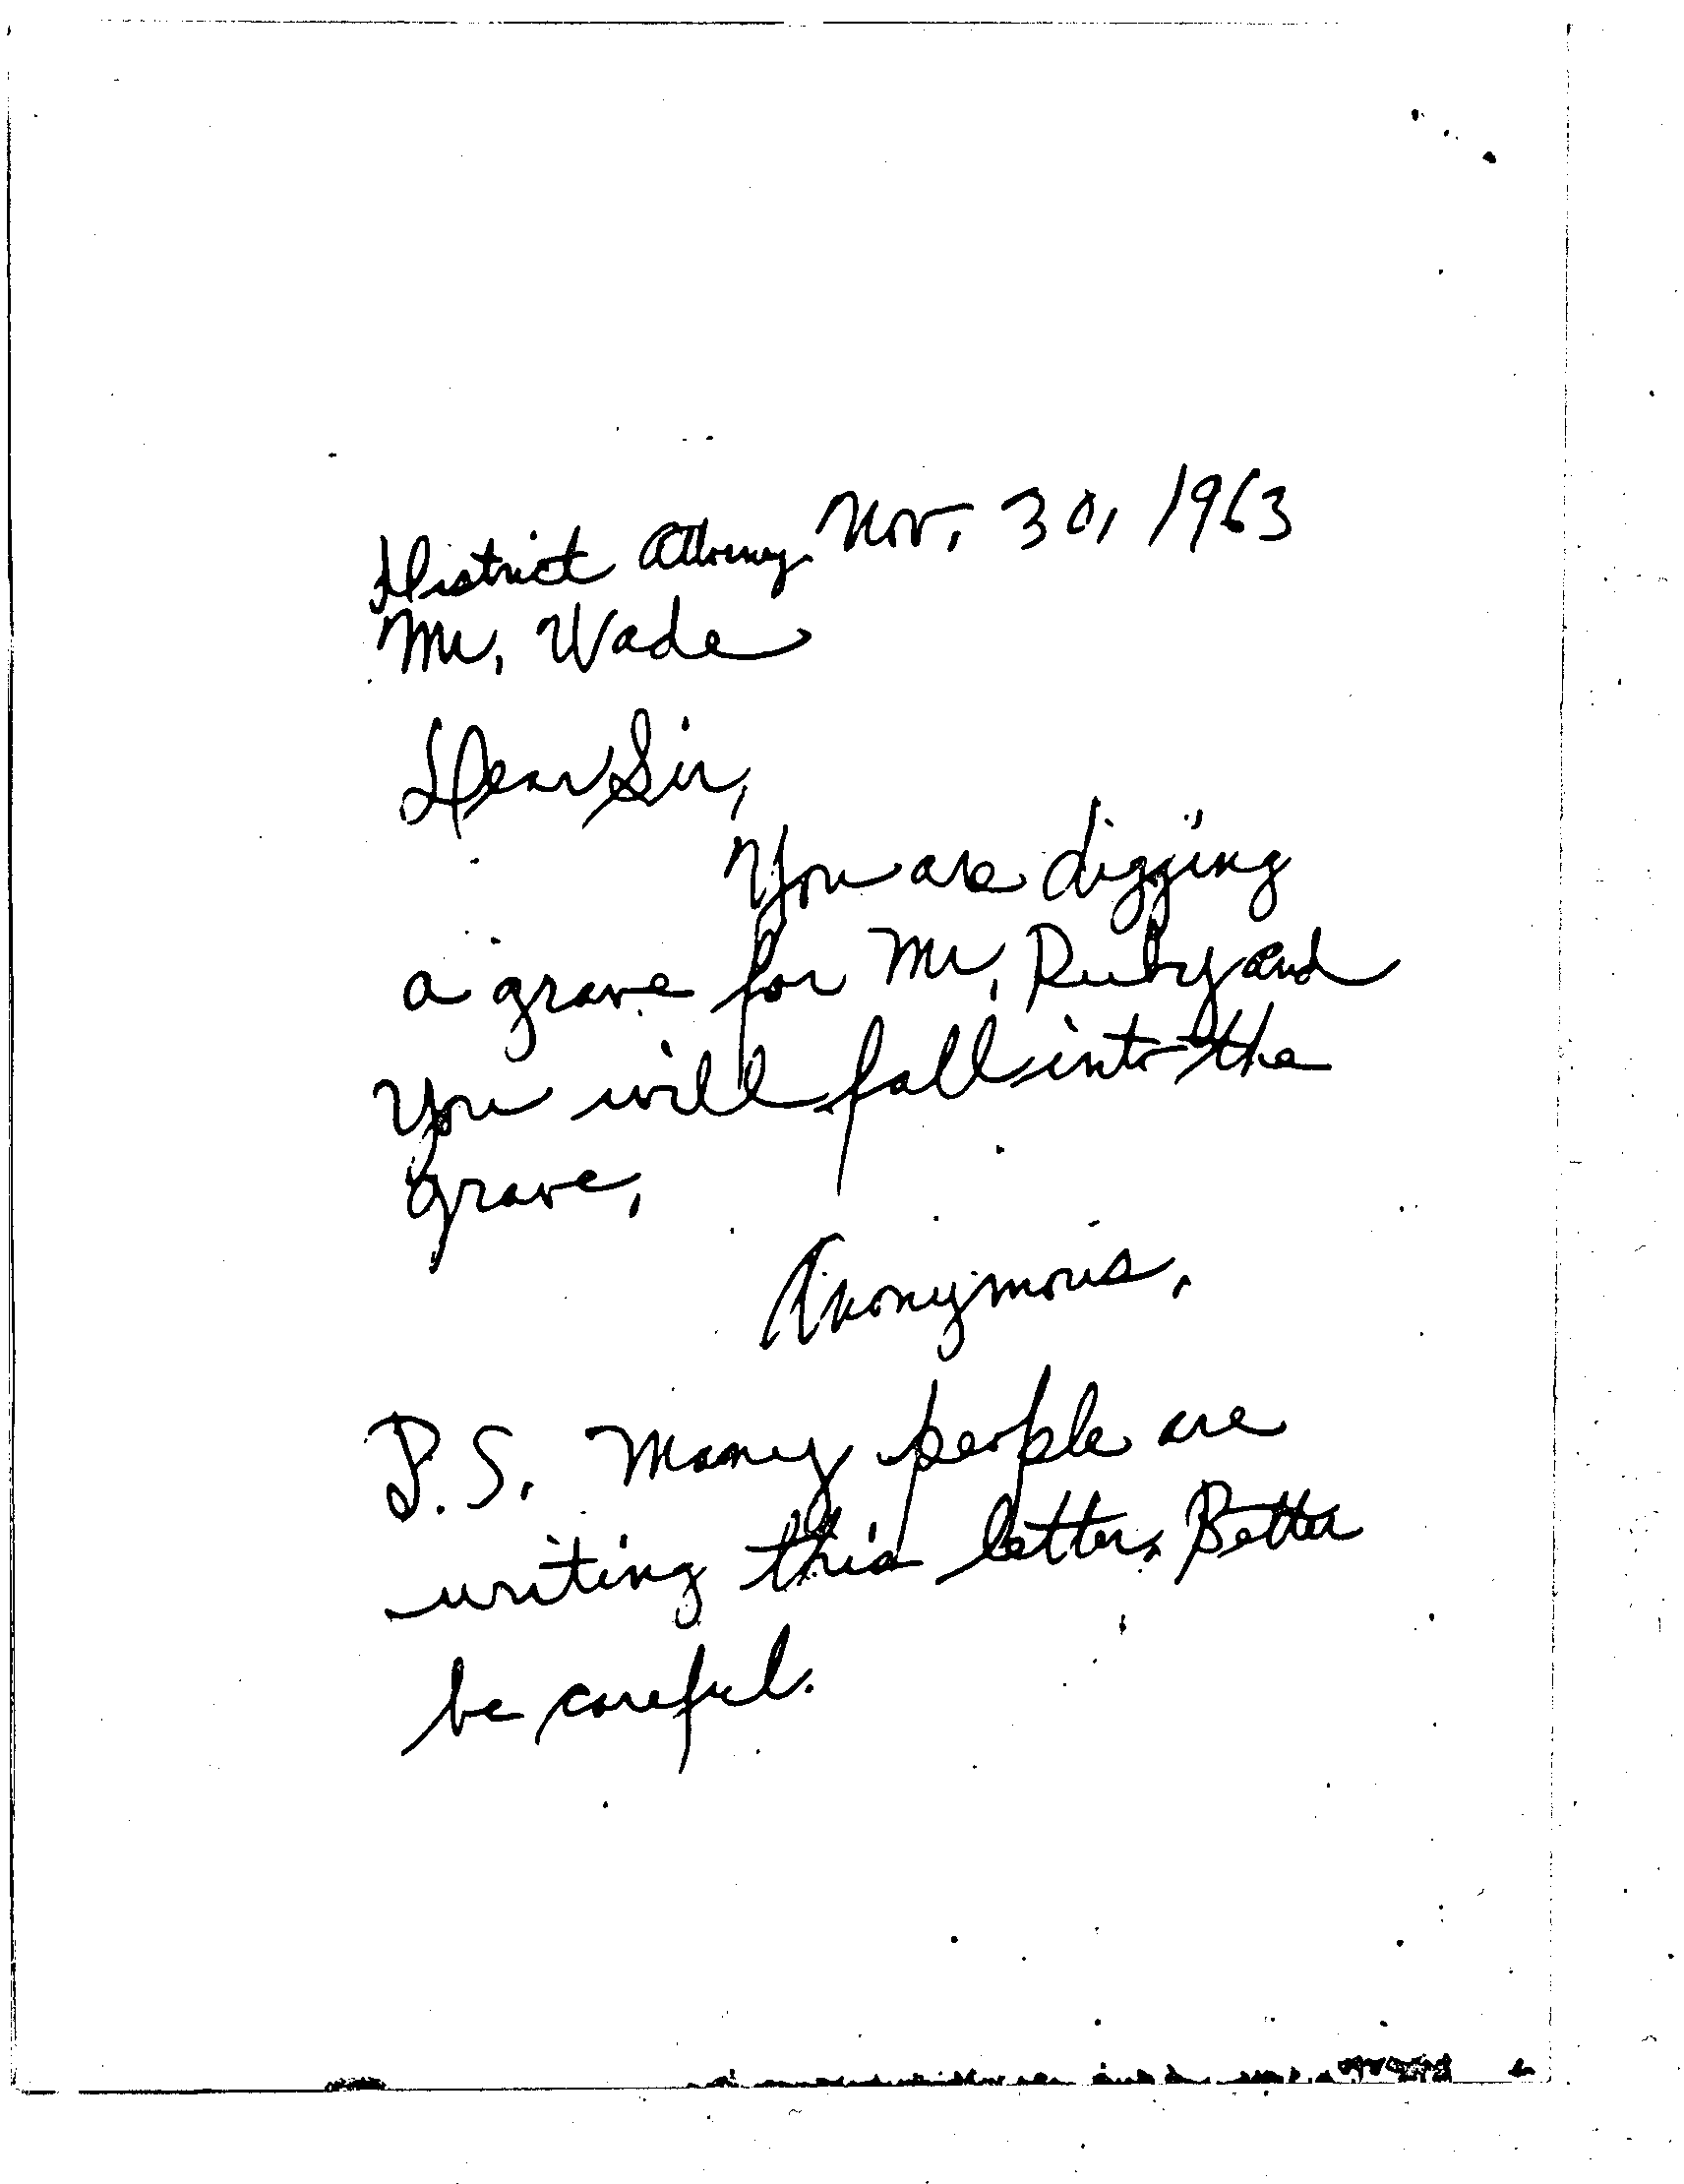 District Attorney. Nov. 30, 1963
Mr. Wade
Dear Sir,
You are digging
a grave for Mr. Ruby and
you will fall into the
grave.
Anonymous.
P.S. Many people are
writing this letter. Better
be careful.